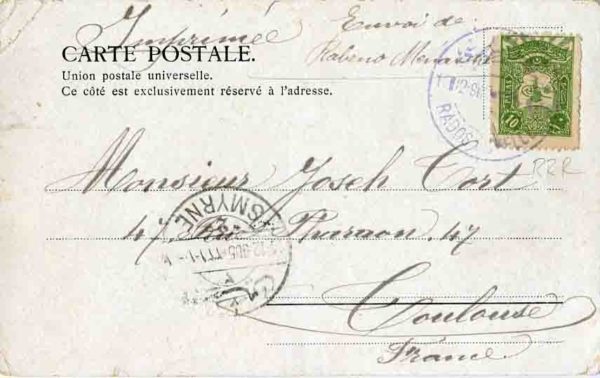 Imprimé
Envoi de
CARTE POSTALE.
Union postale universelle.
Ce côté est exclusivement réservé à l'adresse.
10
10
RRR
Monsieur Joseh Cort
SMYRNE
47, Rue Pharaon, 47
Toulouse
France